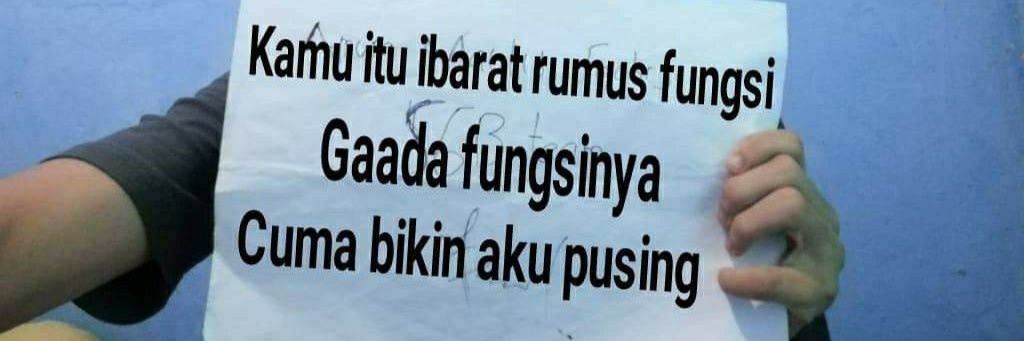 Kamu itu ibarat rumus fungsi
Gaada fungsinya
Cuma bikin aku pusing